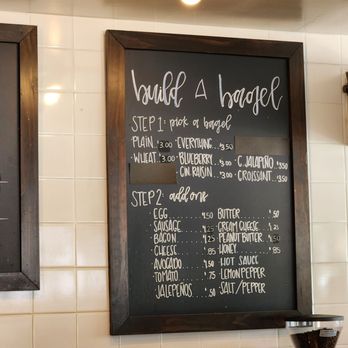 build A bagel
STEP 1: pick a bagel
PLAIN $3.00 · EVERYTHING $3.50
WHEAT $3.00 · BLUEBERRY $3.00 · C. JALAPEÑO $3.50
· CIN. RAISIN $3.00 · CROISSANT $3.50
STEP 2: add ons
EGG 1.50 BUTTER .50
SAUSAGE 1.25 CREAM CHEESE 1.25
BACON 1.25 PEANUT BUTTER .50
CHEESE .85 HONEY .85
AVOCADO 1.50 HOT SAUCE
TOMATO .75 LEMON PEPPER
JALEPEÑOS .50 SALT/PEPPER